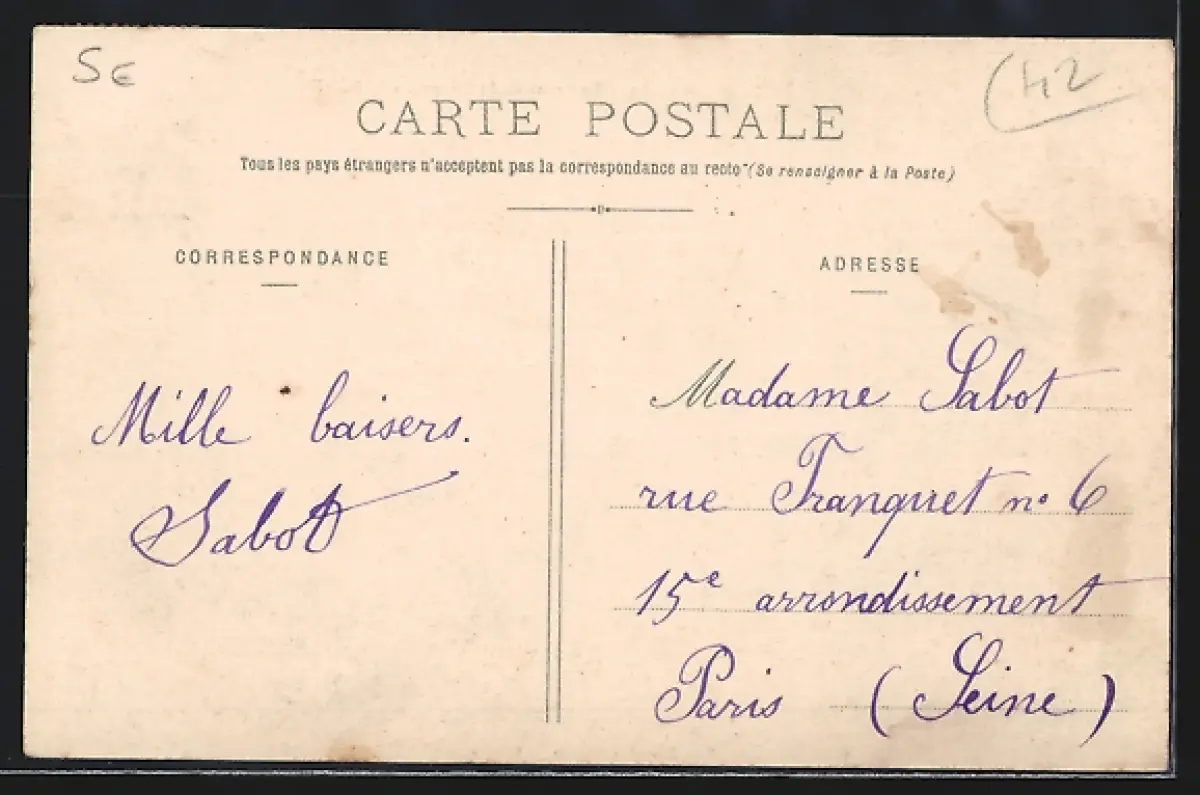 5€
(42
CARTE POSTALE
Tous les pays étrangers n'acceptent pas la correspondance au recto (Se renseigner à la Poste)
CORRESPONDANCE
Mille baisers.
Sabot
ADRESSE
Madame Sabot
rue Tranquet n° 6
15e arrondissement
Paris (Seine)